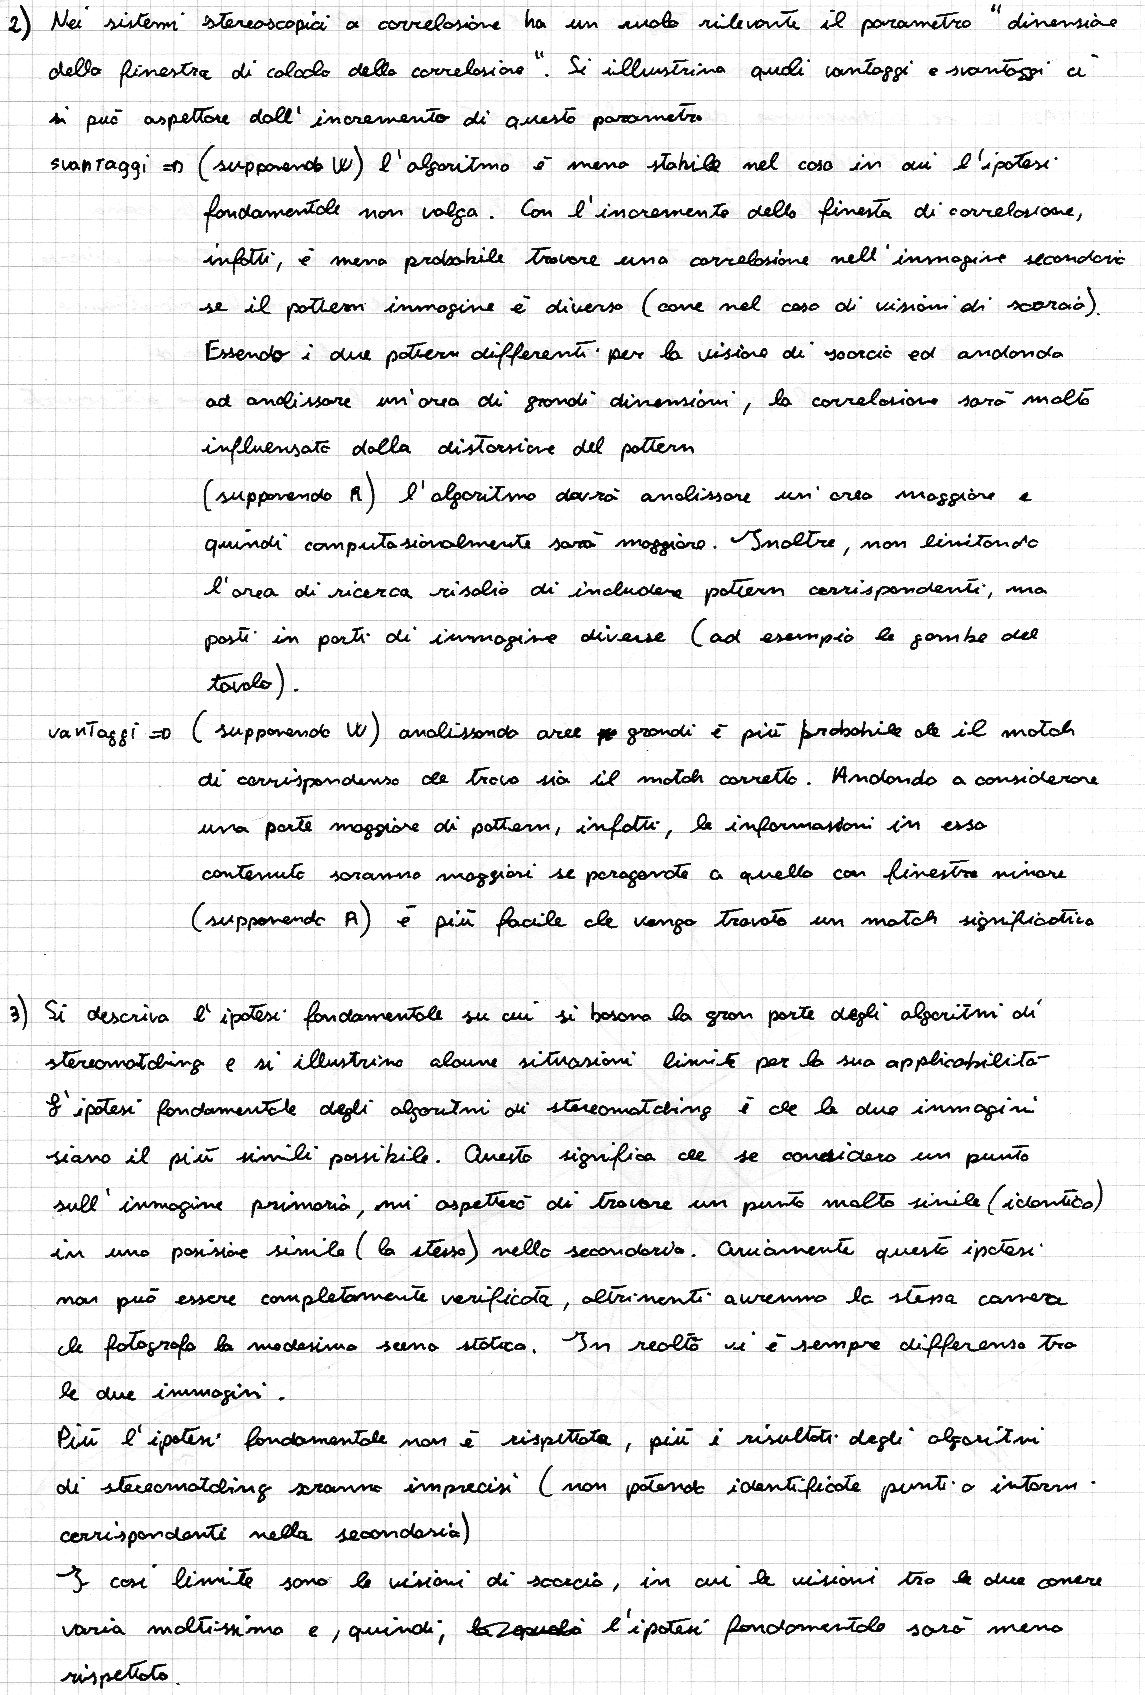 2) Nei sistemi stereoscopici a correlazione ha un ruolo rilevante il parametro "dimensione
della finestra di calcolo della correlazione". Si illustrino quali vantaggi e svantaggi ci
si può aspettare dall'incremento di questo parametro
svantaggi => (supponendo W) l'algoritmo è meno stabile nel caso in cui l'ipotesi
fondamentale non valga. Con l'incremento della finesta di correlazione,
infatti, è meno probabile trovare una correlazione nell'immagine secondaria
se il pattern immagine è diverso (come nel caso di visioni di scorcio).
Essendo i due pattern differenti per la visione di scorcio ed andando
ad analizzare un'area di grandi dimensioni, la correlazione sarà molto
influenzata dalla distorsione del pattern
(supponendo R) l'algoritmo dovrà analizzare un'area maggiore e
quindi computazionalmente sarà maggiore. Inoltre, non limitando
l'area di ricerca rischio di includere pattern corrispondenti, ma
posti in parti di immagine diverse (ad esempio le gambe del
tavolo).
vantaggi => (supponendo W) analizzando aree grandi è più probabile che il match
di corrispondenza che trovo sia il match corretto. Andando a considerare
una parte maggiore di pattern, infatti, le informazioni in esso
contenute saranno maggiori se paragonate a quella con finestra minore
(supponendo R) è più facile che venga trovato un match significativo
3) Si descriva l'ipotesi fondamentale su cui si basano la gran parte degli algoritmi di
stereomatching e si illustrino alcune situazioni limite per la sua applicabilità
L'ipotesi fondamentale degli algoritmi di stereomatching è che le due immagini
siano il più simili possibile. Questo significa che se considero un punto
sull'immagine primaria, mi aspetterò di trovare un punto molto simile (identico)
in una posizione simile (la stessa) nella secondaria. Ovviamente questa ipotesi
non può essere completamente verificata, altrimenti avremmo la stessa camera
che fotografa la medesima scena statica. In realtà vi è sempre differenza tra
le due immagini.
Più l'ipotesi fondamentale non è rispettata, più i risultati degli algoritmi
di stereomatching saranno imprecisi (non potendo identificate punti o intorni
corrispondenti nella secondaria)
I casi limite sono le visioni di scorcio, in cui le visioni tra le due camere
varia moltissimo e, quindi, l'ipotesi fondamentale sarà meno
rispettata.